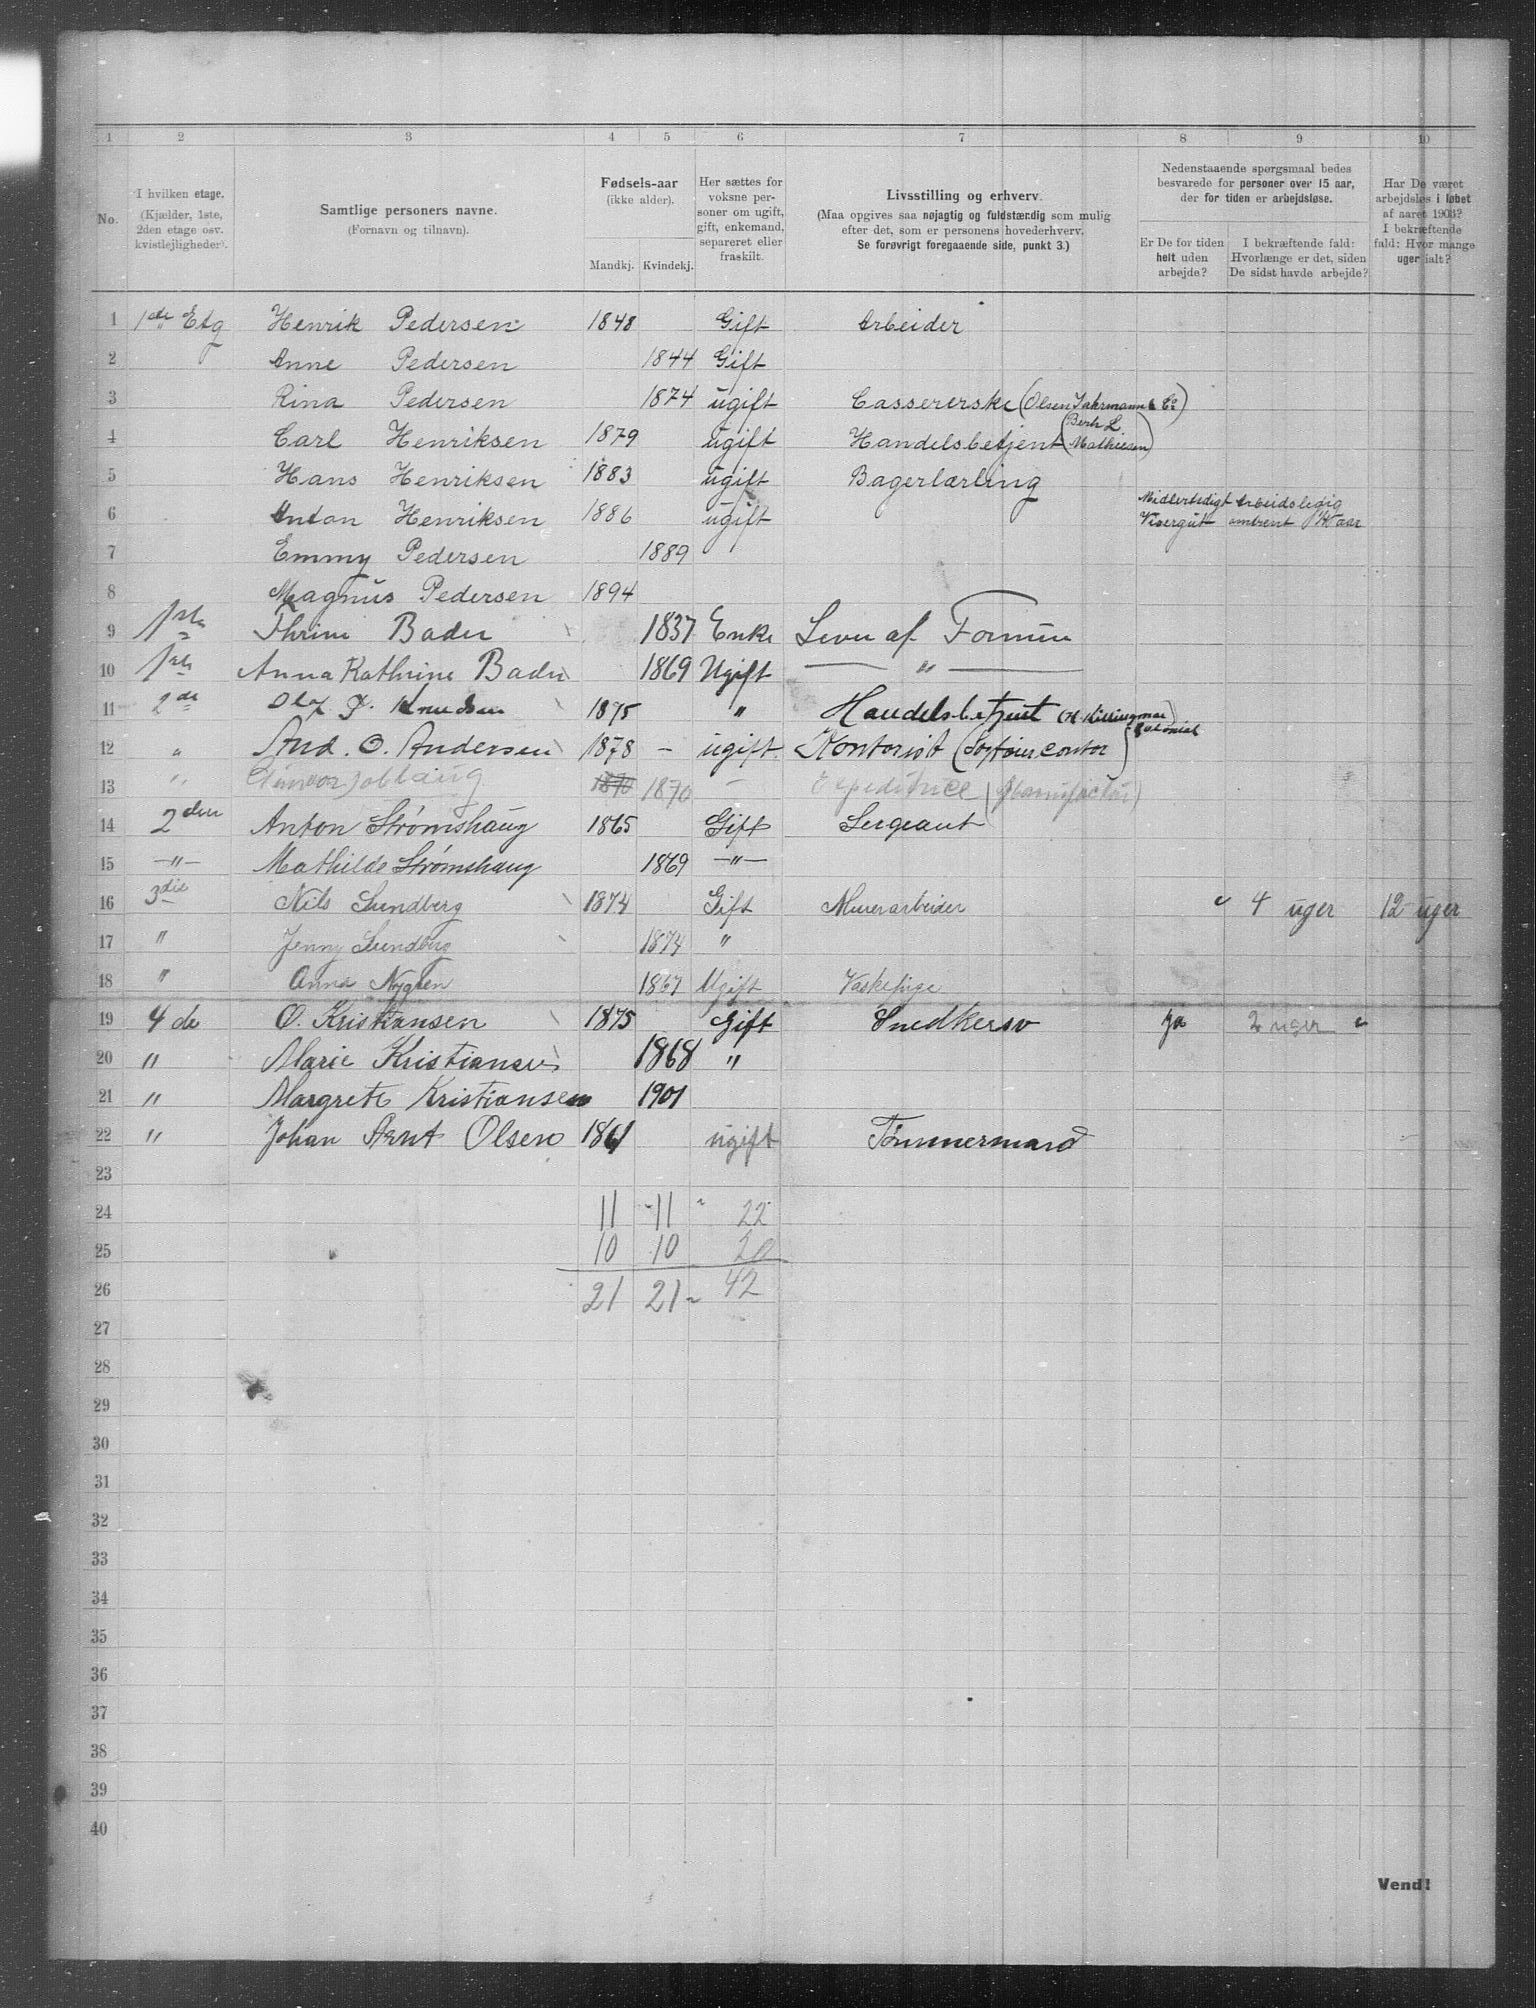 1 2 3 4 5 6 7 8 9 10
No.
I hvilken etage.
(Kjælder, 1ste,
2den etage osv.
kvistlejligheder).
Samtlige personers navne.
(Fornavn og tilnavn).
Fødsels-aar
(ikke alder).
Mandkj. Kvindekj.
Her sættes for
voksne per-
soner om ugift,
gift, enkemand,
separeret eller
fraskilt.
Livsstilling og erhverv.
(Maa opgives saa nøjagtig og fuldstændig som mulig
efter det, som er personens hovederhverv.
Se forøvrigt foregaaende side, punkt 3.)
Nedenstaaende spørgsmaal bedes
besvarede for personer over 15 aar,
der for tiden er arbejdsløse.
Er De for tiden
helt uden
arbejde?
I bekræftende fald:
Hvorlænge er det, siden
De sidst havde arbejde?
Har De været
arbejdsløs i løbet
af aaret 1903?
I bekræftende
fald: Hvor mange
uger ialt?
1 1ste Etg Henrik Pedersen 1848 Gift Arbeider
2 Anne Pedersen 1844 Gift
3 Rina Pedersen 1874 ugift Cassererske (Olsen Jahrmann & Co)
4 Carl Henriksen 1879 ugift Handelsbetjent (Berh L. Mathiesen)
5 Hans Henriksen 1883 ugift Bagerlærling
6 Anton Henriksen 1886 ugift Midlertedigt Arbeidsledig
Visergut omtrent 1/4 aar
7 Emmy Pedersen 1889
8 Magnus Pedersen 1894
9 1ste Thrine Bader 1837 Enke Lever af Formue
10 1ste Anna Kathrine Bader 1869 Ugift — " —
11 2de Olaf P. Knudsen 1875 " Handelsbetjent (H. Killingmoe) Kolonial
12 " And. O. Andersen 1878 – ugift. Kontorist
13 " Gunvor 1870 1870 – Expeditrice (Manufactur)
14 2den Anton Strømshaug 1865 Gift Sergeant
15 –"– Mathilde Strømshaug 1869 –"–
16 3die Nils Sundberg 1874 Gift Murerarbeider 4 uger 12 uger
17 " Jenny Sundberg 1874 "
18 " Anna Nygren 1867 Ugift Vaskepige
19 4de O. Kristiansen 1875 Gift Snedkersv ja 2 uger
20 " Marie Kristiansen 1868 "
21 " Margrete Kristiansen 1901
22 " Johan Arnt Olsen 1861 ugift Tømmermand
23
24 11 11 22
25 10 10 20
26 21 21 42
27
28
29
30
31
32
33
34
35
36
37
38
39
40
Vend!